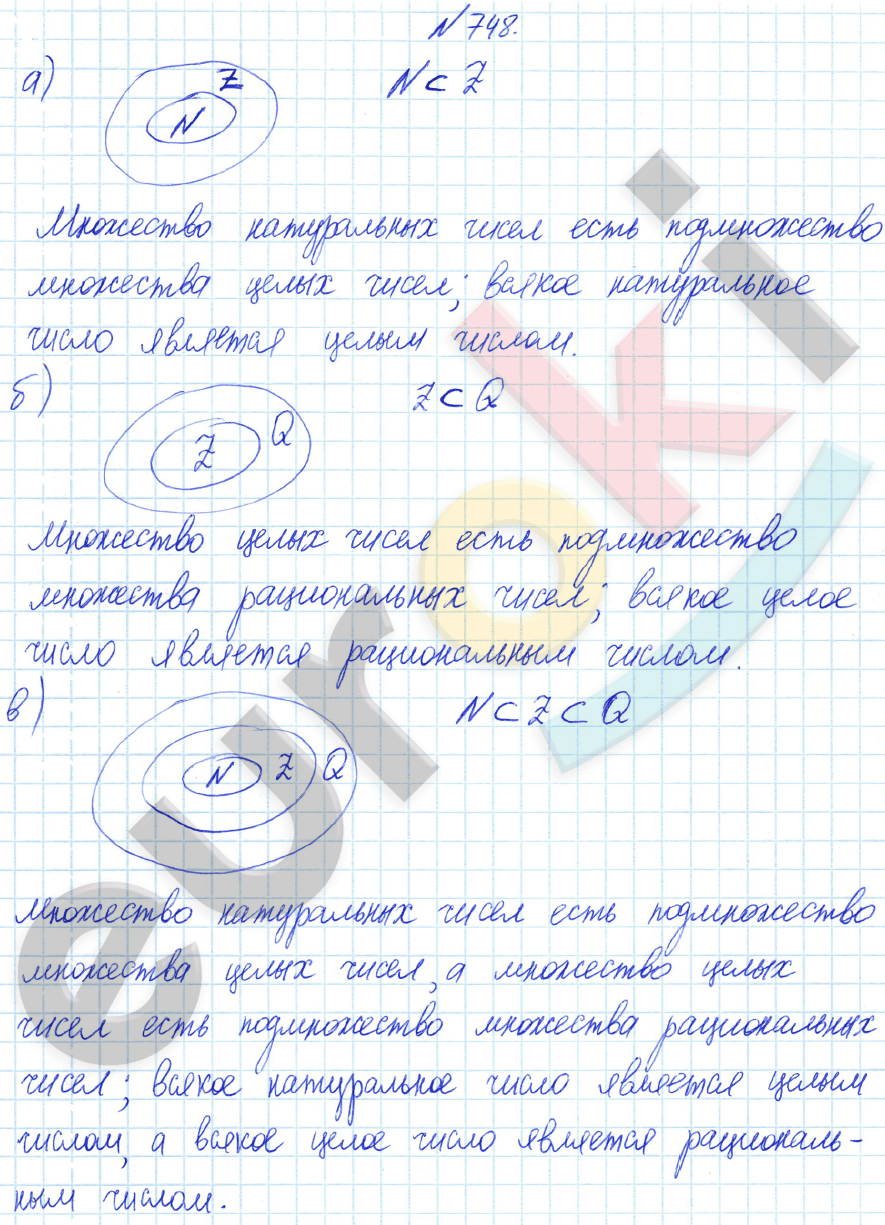 N 748.
а) Z N N ⊂ Z
Множество натуральных чисел есть подмножество
множества целых чисел; всякое натуральное
число является целым числом.
б) Z Q Z ⊂ Q
Множество целых чисел есть подмножество
множества рациональных чисел; всякое целое
число является рациональным числом.
в) N Z Q N ⊂ Z ⊂ Q
Множество натуральных чисел есть подмножество
множества целых чисел, а множество целых
чисел есть подмножество множества рациональных
чисел; всякое натуральное число является целым
числом, а всякое целое число является рациональ-
ным числом.
euroki